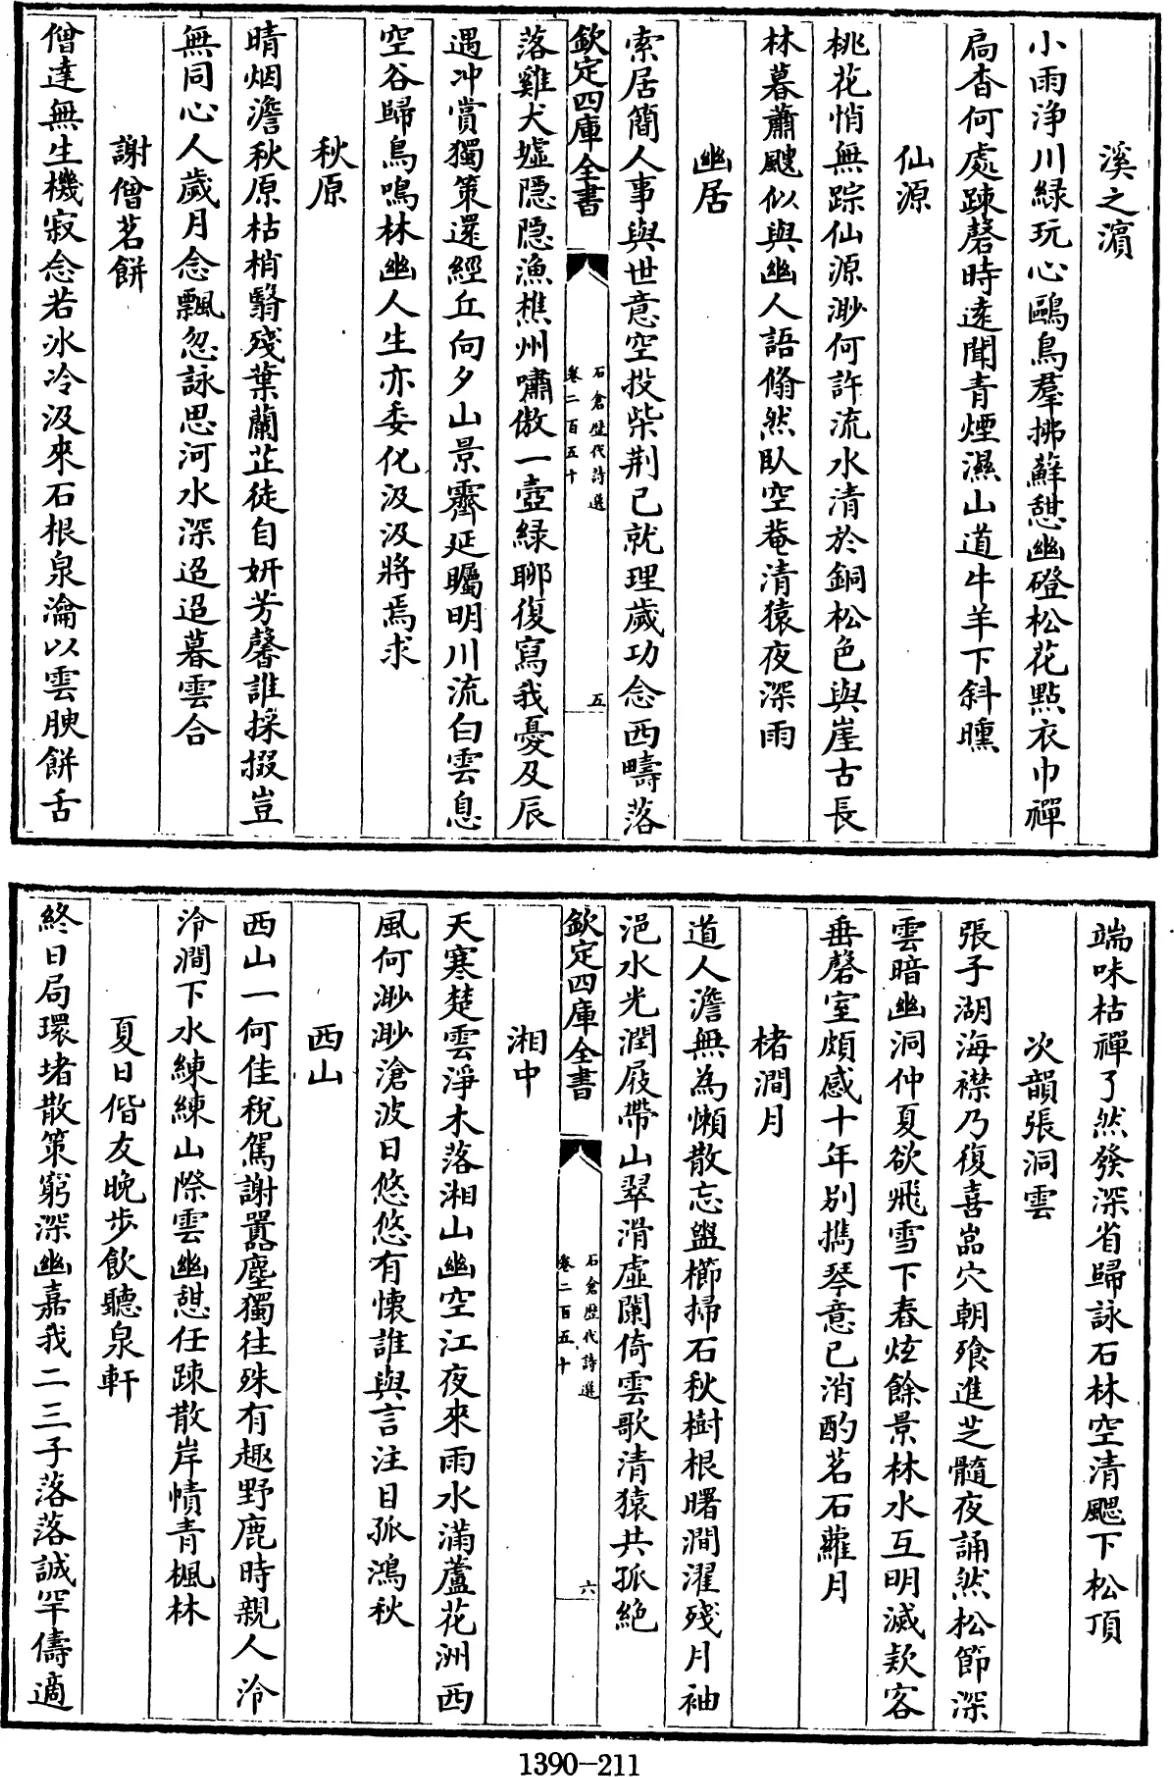 溪之濵
小雨浄川緑玩心鷗鳥羣拂蘚憇幽磴松花㸃衣巾禪
扄杳何處踈磬時逺聞青煙濕山道牛羊下斜曛
仙源
桃花悄無踪仙源渺何許流水清於銅松色與崖古長
林暮蕭颼似與幽人語翛然臥空菴清猿夜深雨
幽居
索居簡人事與世意空投柴荆已就理歲功念西疇落
欽定四庫全書
石倉歴代詩選
卷二百五十
五
落雞犬墟隠隠漁樵州嘯傲一壺緑聊復寫我憂及辰
遇冲賞獨策還經丘向夕山景霽延矚明川流白雲息
空谷歸鳥鳴林幽人生亦委化汲汲將焉求
秋原
晴烟澹秋原枯梢翳殘葉蘭芷徒自妍芳馨誰採掇豈
無同心人歲月念飄忽詠思河水深迢迢暮雲合
謝僧茗餅
僧逹無生機寂念若氷冷汲來石根泉瀹以雲腴餅舌
端味枯禪了然發深省歸詠石林空清颸下松頂
次韻張洞雲
張子湖海襟乃復喜嵓穴朝飱進芝髓夜誦然松節深
雲暗幽洞仲夏欲飛雪下舂炫餘景林水互明滅欵客
垂磬室頗感十年别攜琴意已消酌茗石蘿月
楮澗月
道人澹無為懶散忘盥櫛掃石秋樹根曙澗濯殘月袖
浥水光潤屐帶山翠滑虛闌倚雲歌清猿共孤絶
欽定四庫全書
石倉歴代詩選
卷二百五十
六
湘中
天寒楚雲淨木落湘山幽空江夜來雨水滿蘆花洲西
風何渺渺滄波日悠悠有懷誰與言注目孤鴻秋
西山
西山一何佳稅駕謝囂塵獨往殊有趣野鹿時親人泠
泠澗下水練練山際雲幽憇任踈散岸幘青楓林
夏日偕友晚步飲聽泉軒
終日局環堵散策窮深幽嘉我二三子落落誠罕儔適
1390-211